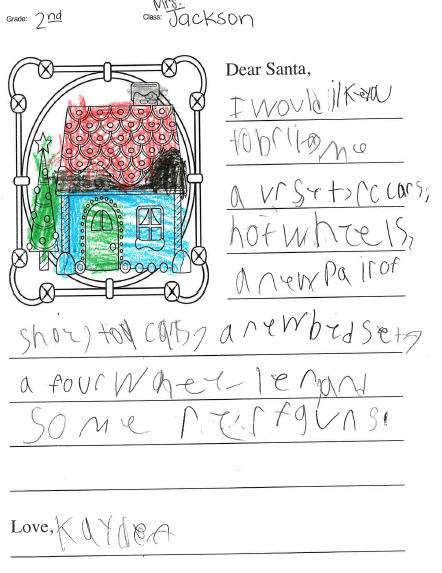 Grade: 2nd
Class: Mrs. Jackson
Dear Santa,
I would like you
to bring me
a vr set, rc cars,
hot wheels,
a new pair of
shois, toy cars, a new bed set,
a four wheeler and
some nerf guns.
Love, Kayden